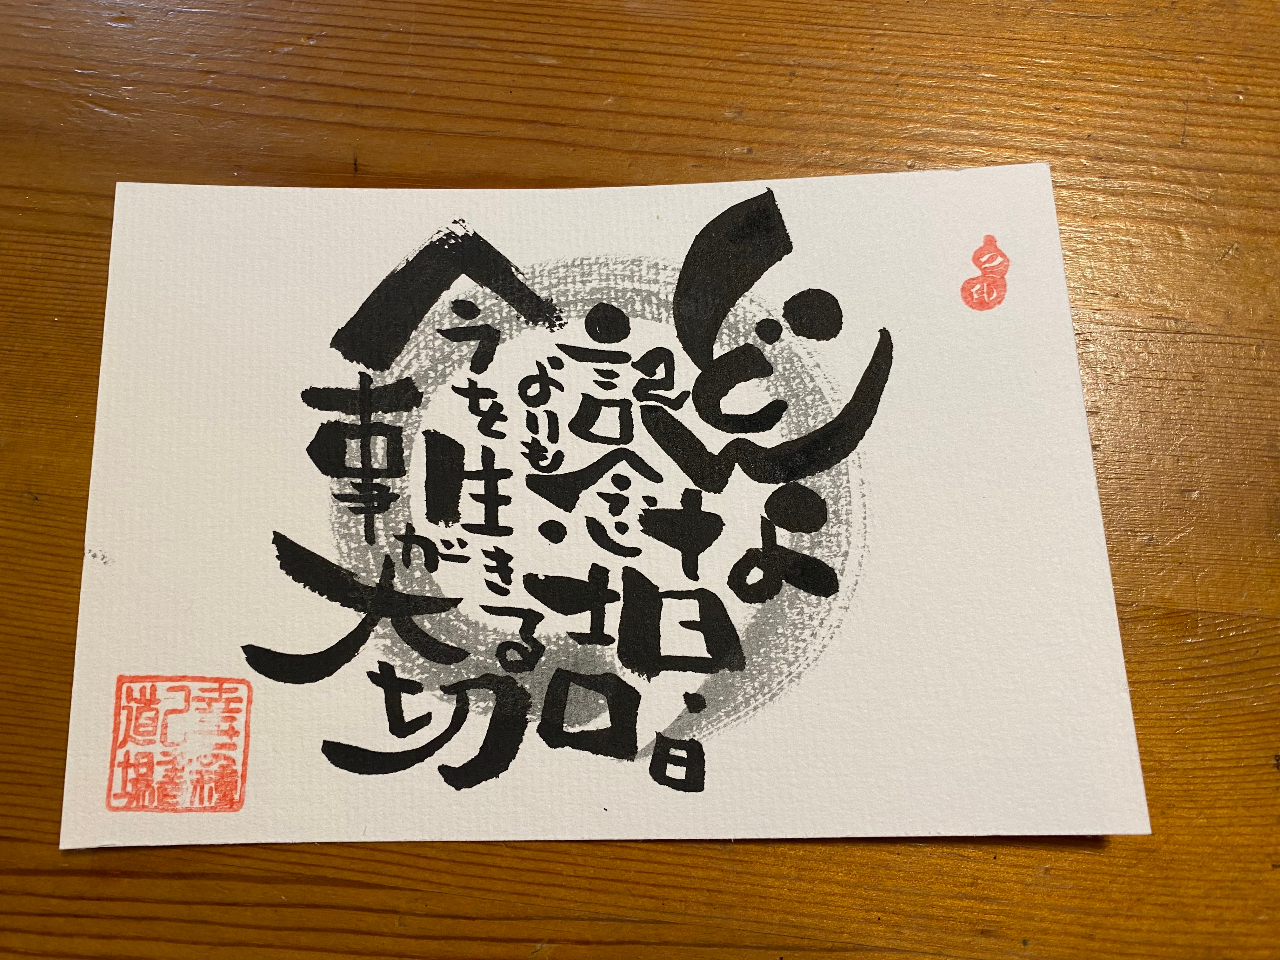 どんな
記念日・吉日
よりも
今を生きる
事が大切
己書
道場